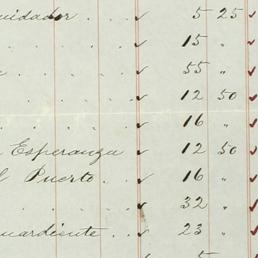 uidador . . . ✓ 5 25 ✓
. . . . ✓ 15 „ ✓
. . . . ✓ 55 „ ✓
. . . . ✓ 12 50 ✓
. . . . ✓ 16 „ ✓
Esperanza ✓ 12 50 ✓
l Puerto . . ✓ 16 „ ✓
. . . . ✓ 32 „ ✓
uardiente . . ✓ 23 „ ✓